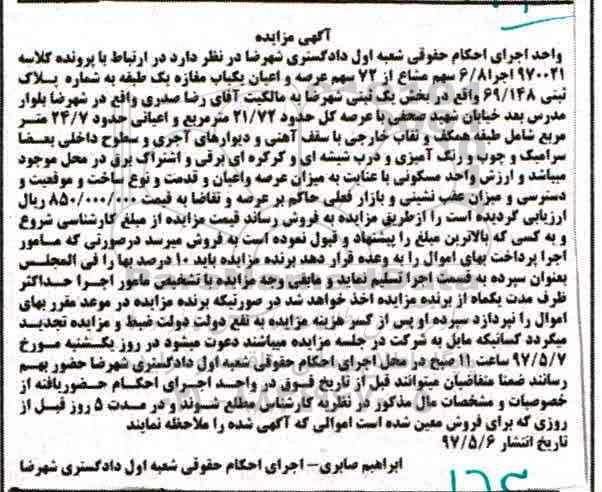 آگهی مزایده
واحد اجرای احکام حقوقی شعبه اول دادگستری شهرضا در نظر دارد در ارتباط با پرونده کلاسه
۹۷۰۰۲۱ اجرا ۶/۸ سهم مشاع از ۷۲ سهم عرصه و اعیان یکباب مغازه یک طبقه به شماره پلاک
ثبتی ۶۹/۱۴۸ واقع در بخش یک ثبتی شهرضا به مالکیت آقای رضا صدری واقع در شهرضا بلوار
مدرس بعد خیابان شهید صحفی با عرصه کل حدود ۲۱/۷۲ مترمربع و اعیانی حدود ۲۴/۷ متر
مربع شامل طبقه همکف و نقاب خارجی با سقف آهنی و دیوارهای آجری و سطوح داخلی بعضا
سرامیک و چوب و رنگ آمیزی و درب شیشه ای و کرکره ای برقی و اشتراک برق در محل موجود
میباشد و ارزش واحد مسکونی با عنایت به میزان عرصه واعیان و قدمت و نوع ساخت و موقعیت و
دسترسی و میزان عقب نشینی و بازار فعلی حاکم بر عرصه و تقاضا به قیمت ۸۵۰/۰۰۰/۰۰۰ ریال
ارزیابی گردیده است را ازطریق مزایده به فروش رساند قیمت مزایده از مبلغ کارشناسی شروع
و به کسی که بالاترین مبلغ را پیشنهاد و قبول نموده است به فروش میرسد درصورتی که مامور
اجرا پرداخت بهای اموال را به وعده قرار دهد برنده مزایده باید ۱۰ درصد بها را فی المجلس
بعنوان سپرده به قسمت اجرا تسلیم نماید و مابقی وجه مزایده با تشخیص مامور اجرا حداکثر
ظرف مدت یکماه از برنده مزایده اخذ خواهد شد در صورتیکه برنده مزایده در موعد مقرر بهای
اموال را نپردازد سپرده او پس از کسر هزینه مزایده به نفع دولت دولت ضبط و مزایده تجدید
میگردد کسانیکه مایل به شرکت در جلسه مزایده میباشند دعوت میشود در روز یکشنبه مورخ
۹۷/۵/۷ ساعت ۱۱ صبح در محل اجرای احکام حقوقی شعبه اول دادگستری شهرضا حضور بهم
رسانند ضمنا متقاضیان میتوانند قبل از تاریخ فوق در واحد اجرای احکام حضوریافته از
خصوصیات و مشخصات مال مذکور در نظریه کارشناس مطلع شوند و در مدت ۵ روز قبل از
روزی که برای فروش معین شده است اموالی که آگهی شده را ملاحظه نمایند
تاریخ انتشار ۹۷/۵/۶
ابراهیم صابری – اجرای احکام حقوقی شعبه اول دادگستری شهرضا